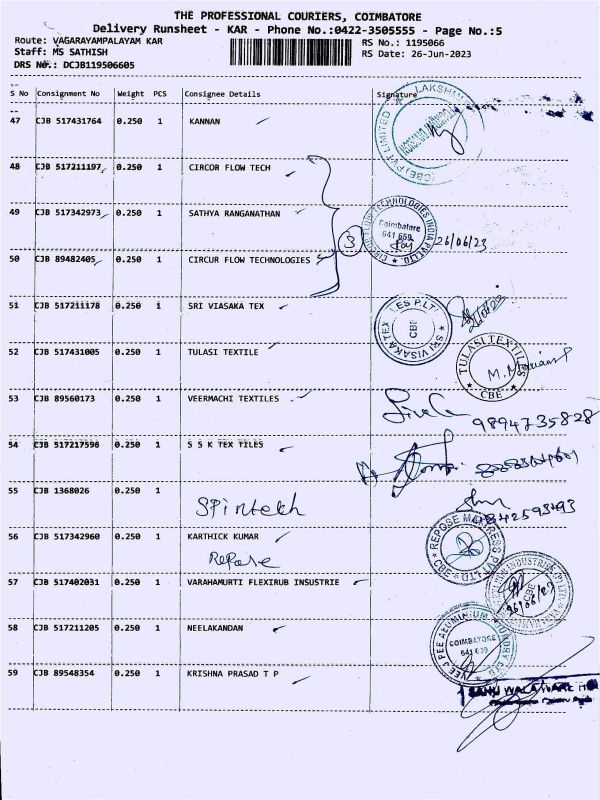 THE PROFESSIONAL COURIERS, COIMBATORE
Delivery Runsheet - KAR - Phone No.:0422-3505555 - Page No.:5
Route: VAGARAYAMPALAYAM KAR
RS No.: 1195066
Staff: MS SATHISH
RS Date: 26-Jun-2023
DRS No.: DCJB119506605
S No Consignment No Weight PCS Consignee Details Signature
47 CJB 517431764 0.250 1 KANNAN
LAKSHMI (CBE) PVT LIMITED
48 CJB 517211197 0.250 1 CIRCOR FLOW TECH
49 CJB 517342973 0.250 1 SATHYA RANGANATHAN
3
CIRCOR FLOW TECHNOLOGIES INDIA PVT LTD.
Coimbatore
641 659
26/06/23
50 CJB 89482405 0.250 1 CIRCUR FLOW TECHNOLOGIES
51 CJB 517211178 0.250 1 SRI VIASAKA TEX
SRI VISAKA TEX
CBE
52 CJB 517431005 0.250 1 TULASI TEXTILE
TULASI TEXTILES
CBE
53 CJB 89560173 0.250 1 VEERMACHI TEXTILES
9894735828
54 CJB 517217596 0.250 1 S S K TEX TILES
55 CJB 1368026 0.250 1
Spintech
56 CJB 517342960 0.250 1 KARTHICK KUMAR
Repose
REPOSE MATTRESS PVT LTD
CBE
57 CJB 517402031 0.250 1 VARAHAMURTI FLEXIRUB INSUSTRIE
CBE
26/06/23
58 CJB 517211205 0.250 1 NEELAKANDAN
VEE JAY PEE ALUMINIUM FOUNDRY
COIMBATORE
641 659
59 CJB 89548354 0.250 1 KRISHNA PRASAD T P